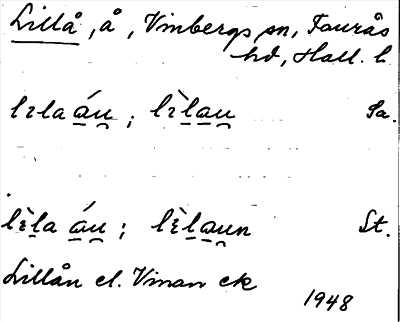 Lillå, å, Vinbergs sn, Faurås
hd, Hall. l.
lɩla áu̯ ; lɩ̀lau̯ Sa.
lɩ̀la áu̯ ; lɩ̀lau̯n St.
Lillån el. Vinan ck
1948